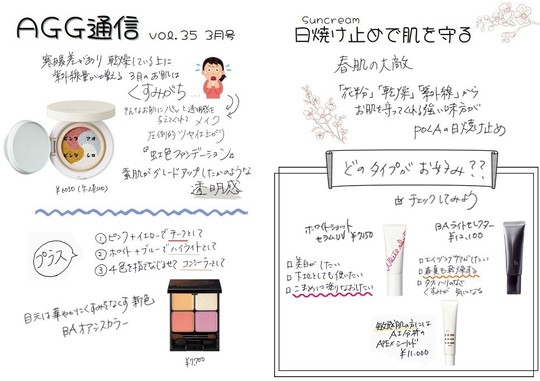 AGG通信 vol.35 3月号
寒暖差があり 乾燥している上に
紫外線量が増える 3月のお肌は
くすみがち…
そんなお肌にパッと透明感を
与えてくれる メイク
圧倒的ツヤ仕上がり
『虹色ファンデーション』
素肌がグレードアップしたかのような
透明感
ピンク
アオ
ピンク
シロ
プラス
①ピンク+イエローでチークとして
②ホワイト+ブルーでハイライトとして
③4色を指でなじませて コンシーラーとして
目元は華やかにくすみをなくす 新色
BAオアシスカラー
¥7,700
Suncream
日焼け止めで肌を守る
春肌の大敵
「花粉」「乾燥」「紫外線」から
お肌を守ってくれる強い味方が
POLAの日焼け止め
どのタイプがお好み??
チェックしてみよう
ホワイトショット
セラムUV ¥7,150
□美白がしたい
□下地としても使いたい
□こまめに塗りなおしたい
BAライトセレクター
¥12,100
□エイジングケアがしたい
□くすみが気になる
敏感肌の方には
APEXシールド
¥11,000